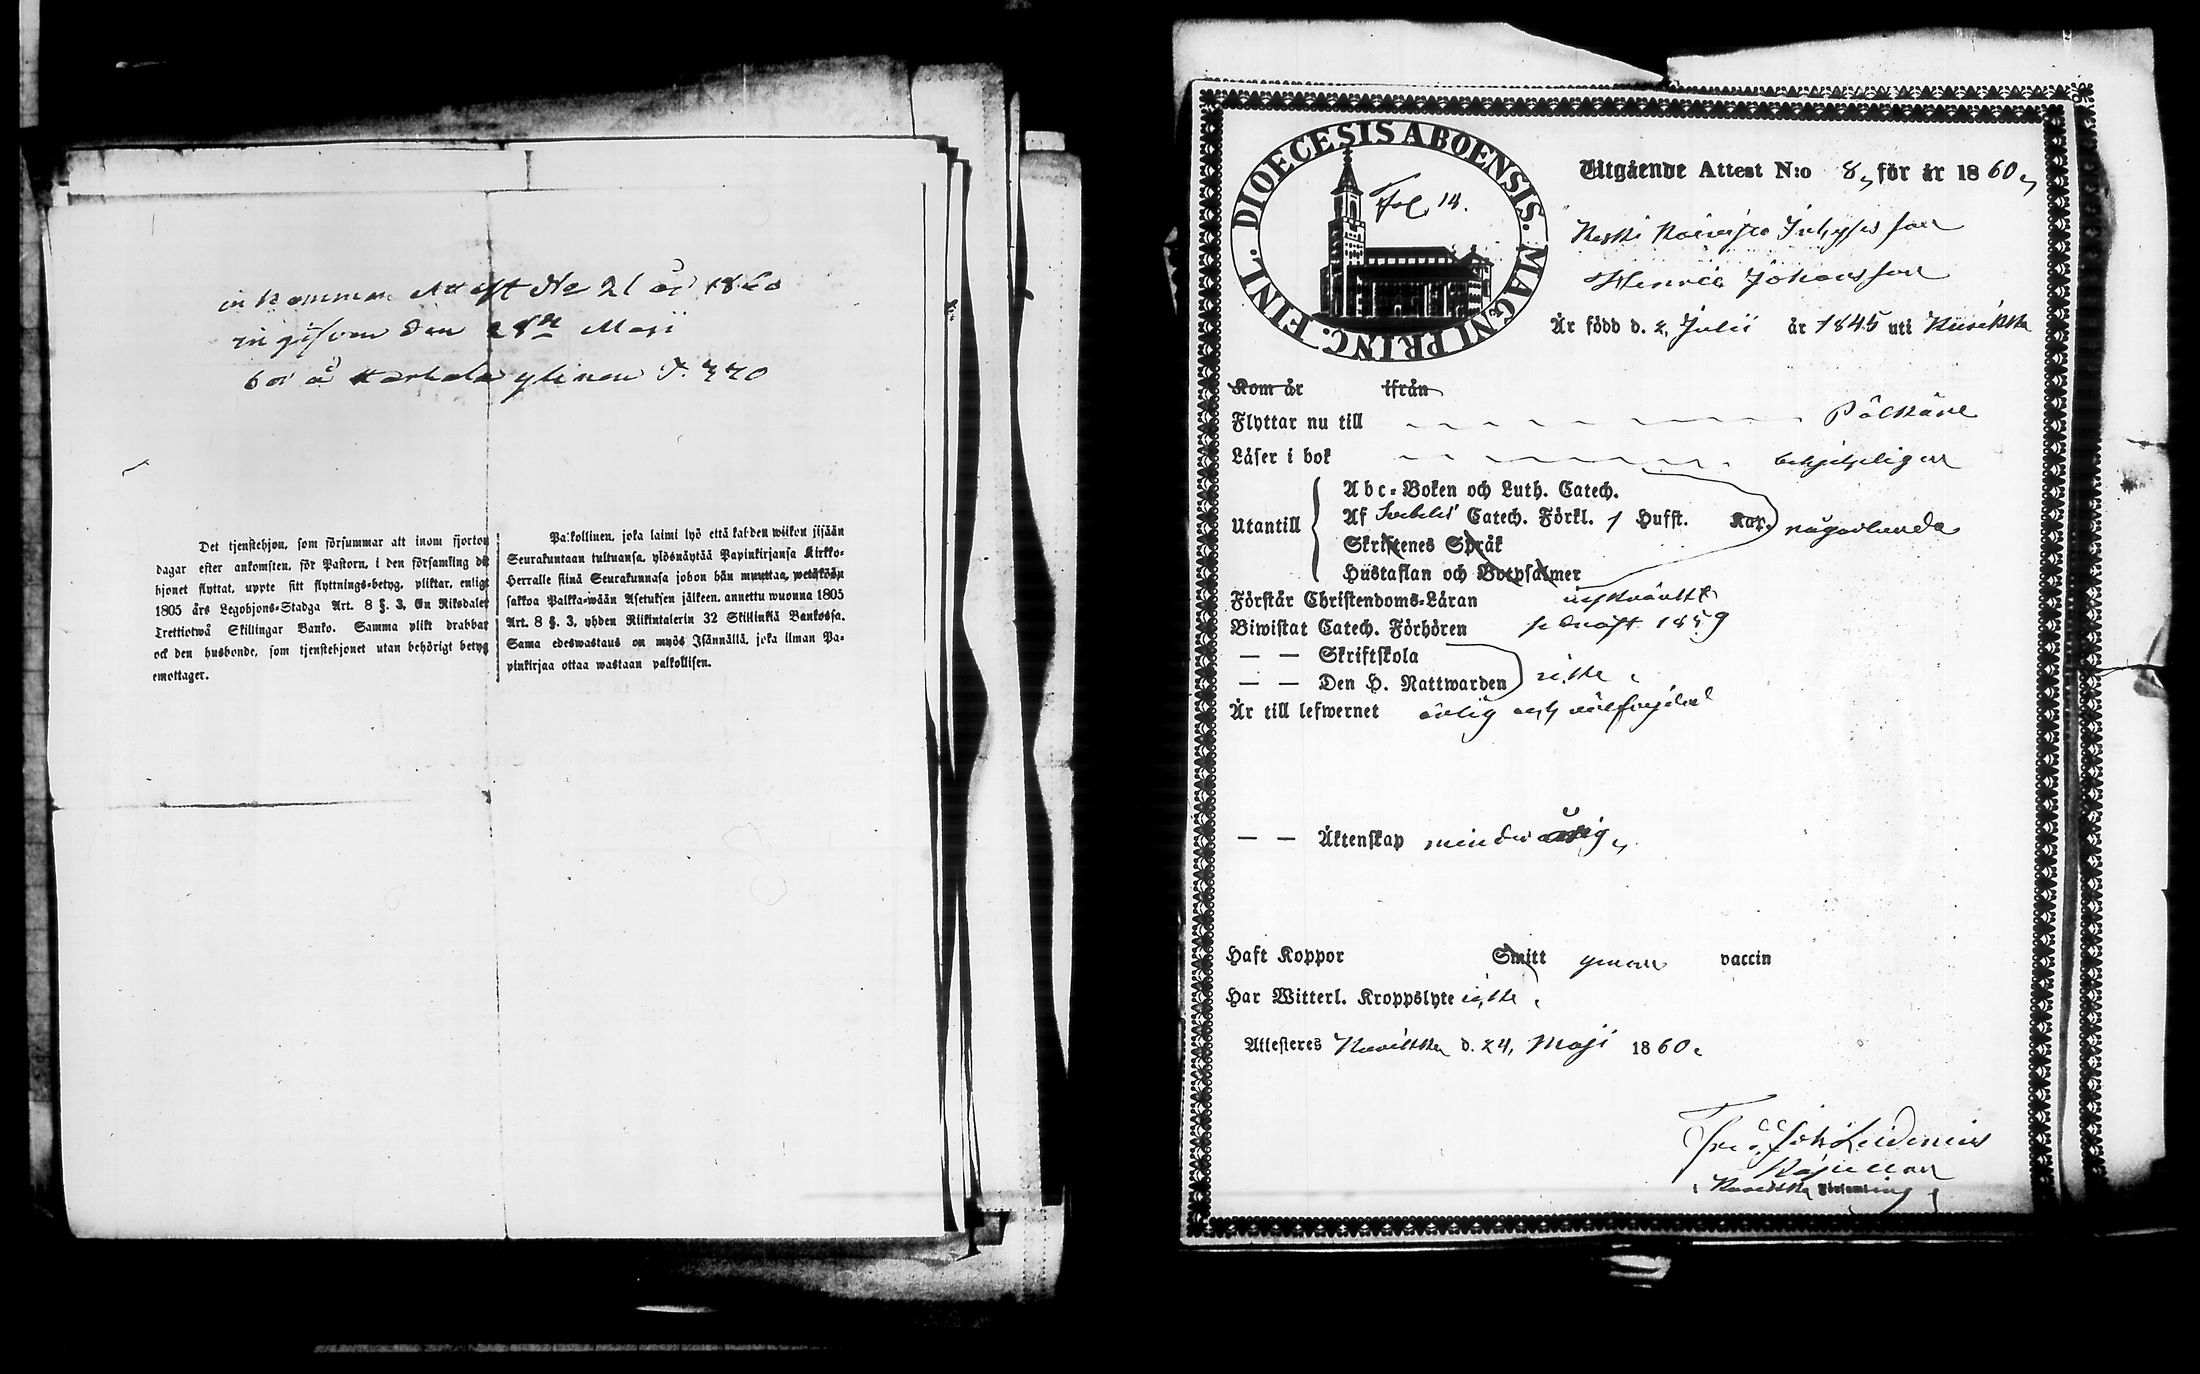 inkommen Attest No 21 år 1860
ingifven den 28de Maji
bor å P. 770
Det tjenstehjon, som försummar att inom fjorton
dagar efter ankomsten, för Pastorn, i den församling dit
hjonet flyttat, uppte sitt flyttnings-betyg, pliktar, enligt
1805 års Legohjons-Stadga Art. 8 §. 3, En Riksdaler
Trettiotwå Skillingar Banko. Samma plikt drabbar
ock den husbonde, som tjenstehjonet utan behörigt betyg
emottager.
Palkollinen, joka laimi lyö että kahden wiikon sisään
Seurakuntaan tultuansa, ylösnäytää Papinkirjansa Kirkko-
Herralle siinä Seurakunnasa johon hän muuttaa, wetäkään
sakkoa Palkka-wään Asetuksen jälkeen, annettu wuonna 1805
Art. 8 §. 3, yhden Riikintalerin 32 Skillinkiä Bankossa.
Sama edeswastaus on myös Isännällä, joka ilman Pa-
pinkirjaa ottaa wastaan palkollisen.
DIOECESIS ABOENSIS. MAGNI PRINC. FINL.
Fol. 14.
Utgående Attest N:o 8, för år 1860,
Henric Johansson
Är född d. 2, Julii år 1845 uti
Kom år ifrån
Flyttar nu till Pälkäne
Läser i bok behjelpligen
Utantill
Abc-Boken och Luth. Catech.
Af Svebelii Catech. Förkl. 1 Hufst. Kap. någorlunda
Skriftenes Språk
Hustaflan och Botpsalmer
Förstår Christendoms-Läran inskränkt
Biwistat Catech. Förhören sednast 1859
— — Skriftskola
— — Den H. Nattwarden icke
Är till lefwernet ärlig och välfrejdad
— — Äktenskap minderårig,
Haft Koppor Smitt genom vaccin
Har Witterl. Kroppslyte icke
Attesteres d. 24, Maji 1860.
Kapellan
i Församling